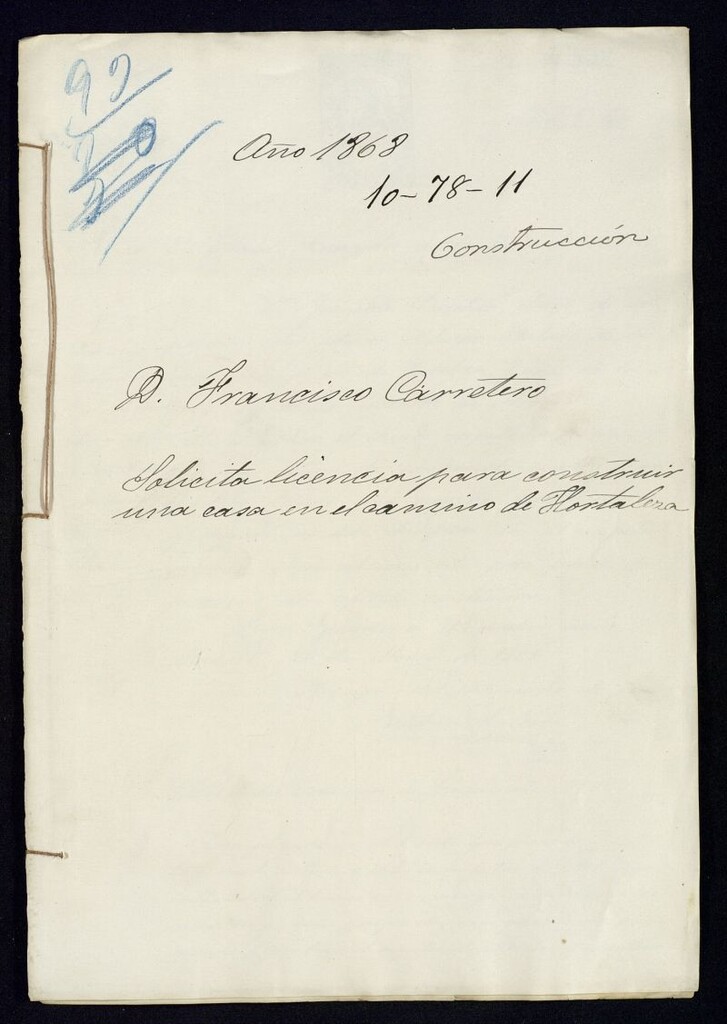 Año 1868
10-78-11
Construcción
D. Francisco Carretero
Solicita licencia para construir
una casa en el camino de Hortaleza